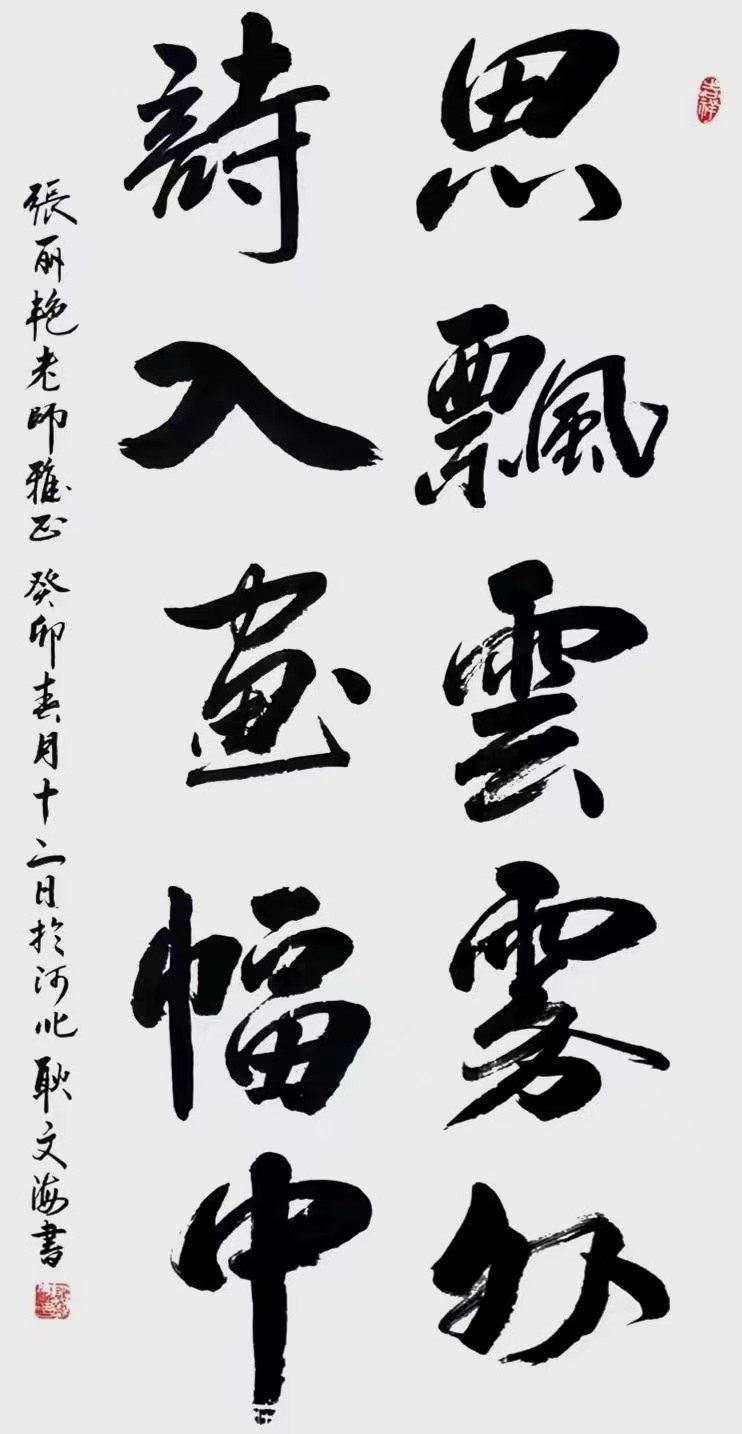 吉祥
思飄雲雾外
詩入画幅中
張丽艳老師雅正 癸卯春月十二日於河北 耿文海書